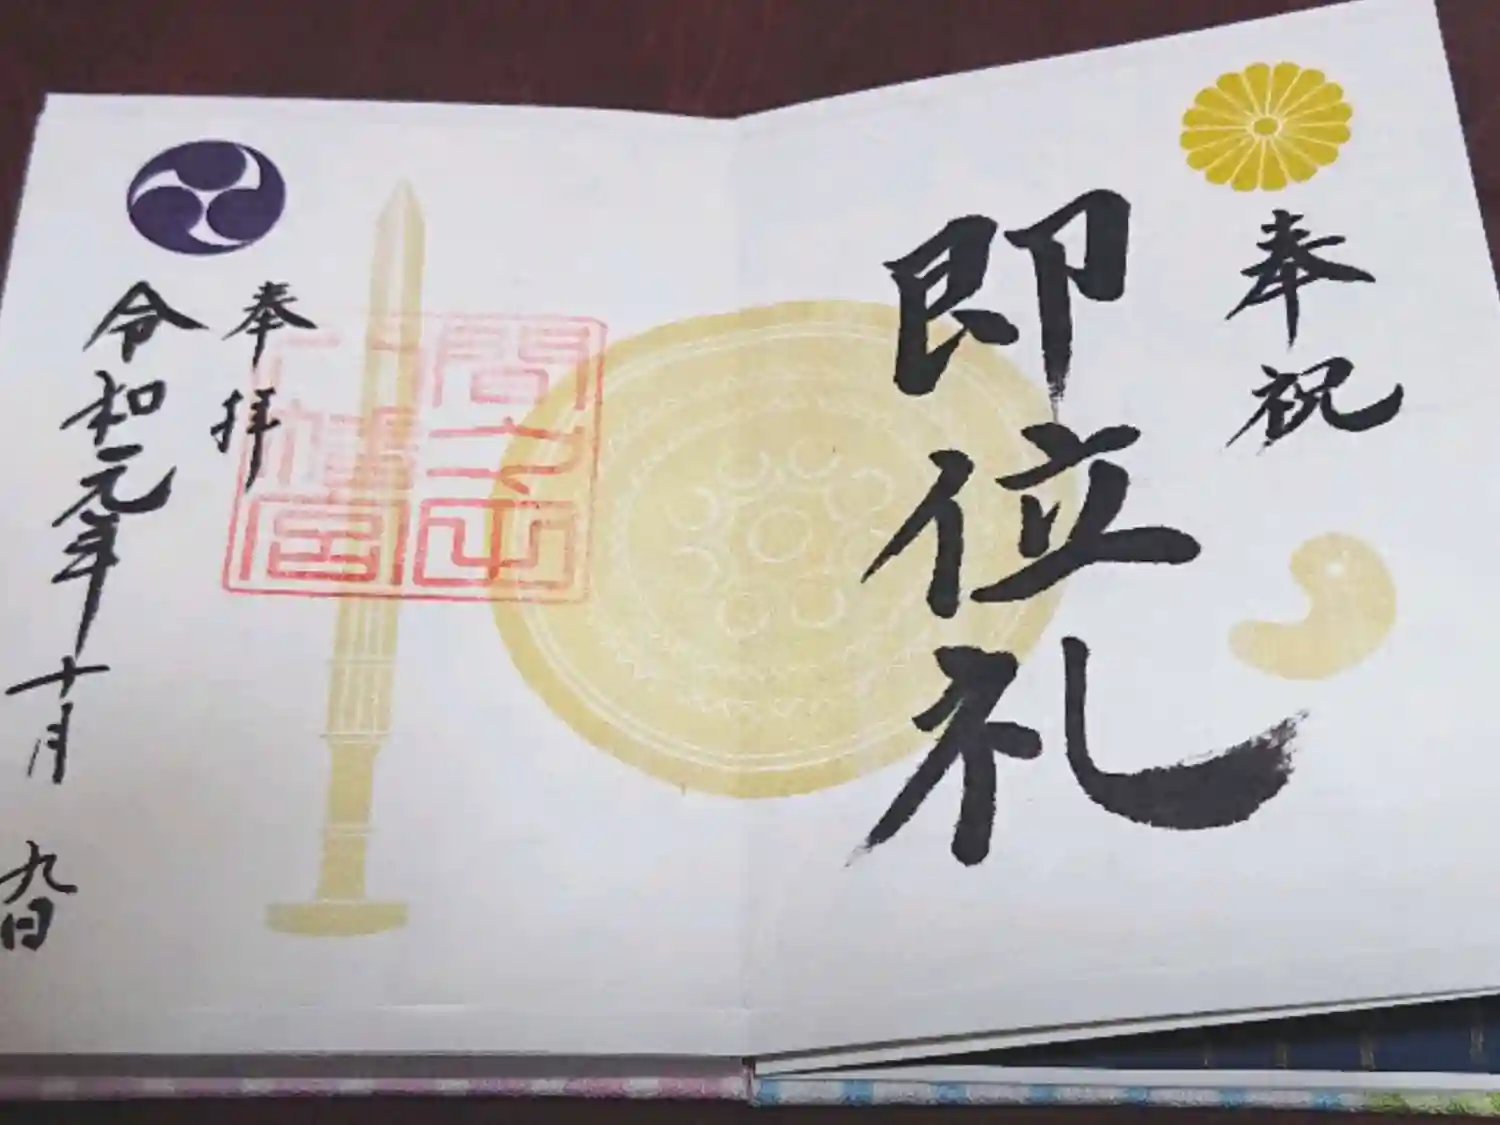 奉祝
即位礼
奉拝
令和元年十月九日